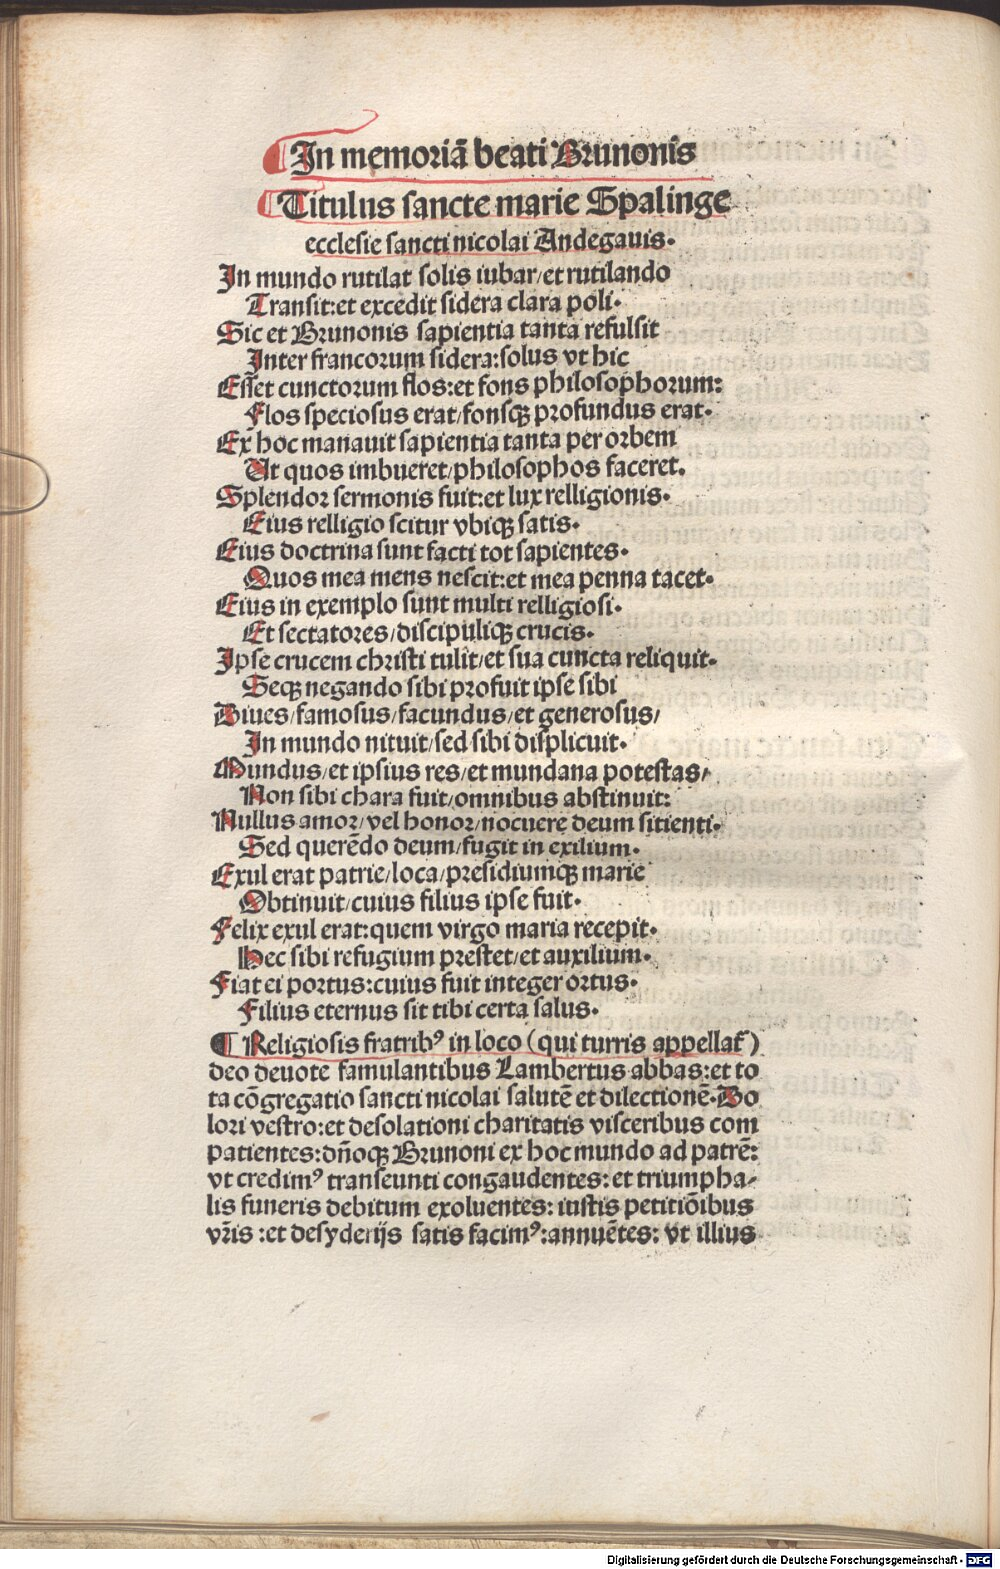 ¶ In memoriā beati Brunonis
¶ Titulus sancte marie Spalinge
ecclesie sancti nicolai Andegauis.
In mundo rutilat solis iubar/et rutilando
Transit:et excedit sidera clara poli.
Sic et Brunonis sapientia tanta refulsit
Inter francorum sidera:solus vt hic
Esset cunctorum flos:et fons philosophorum:
Flos speciosus erat/fonsqȝ profundus erat.
Ex hoc manauit sapientia tanta per orbem
Ut quos imbueret/philosophos faceret.
Splendor sermonis fuit:et lux relligionis.
Eius relligio scitur vbiqȝ satis.
Eius doctrina sunt facti tot sapientes.
Quos mea mens nescit:et mea penna tacet.
Eius in exemplo sunt multi relligiosi.
Et sectatores/discipuliqȝ crucis.
Ipse crucem christi tulit/et sua cuncta reliquit.
Seqȝ negando sibi profuit ipse sibi
Diues/famosus/facundus/et generosus/
In mundo nituit/sed sibi displicuit.
Mundus/et ipsius res/et mundana potestas/
Non sibi chara fuit/omnibus abstinuit:
Nullus amor/vel honor/nocuere deum sitienti.
Sed querēdo deum/fugit in exilium.
Exul erat patrie/loca/presidiumqȝ marie
Obtinuit/cuius filius ipse fuit.
Felix exul erat:quem virgo maria recepit.
Hec sibi refugium prestet/et auxilium.
Fiat ei portus:cuius fuit integer ortus.
Filius eternus sit tibi certa salus.
¶ Religiosis fratribꝰ in loco (qui turris appellat᷑)
deo deuote famulantibus Lambertus abbas:et to
ta cōgregatio sancti nicolai salutē et dilectionē. Do
lori vestro:et desolationi charitatis visceribus com
patientes:dn̄oqȝ Brunoni ex hoc mundo ad patrē:
vt credimꝰ transeunti congaudentes: et triumpha/
lis funeris debitum exoluentes: iustis petitiōibus
vr̄is :et desyderijs satis facimꝰ:annuētes: vt illius
Digitalisierung gefördert durch die Deutsche Forschungsgemeinschaft - DFG